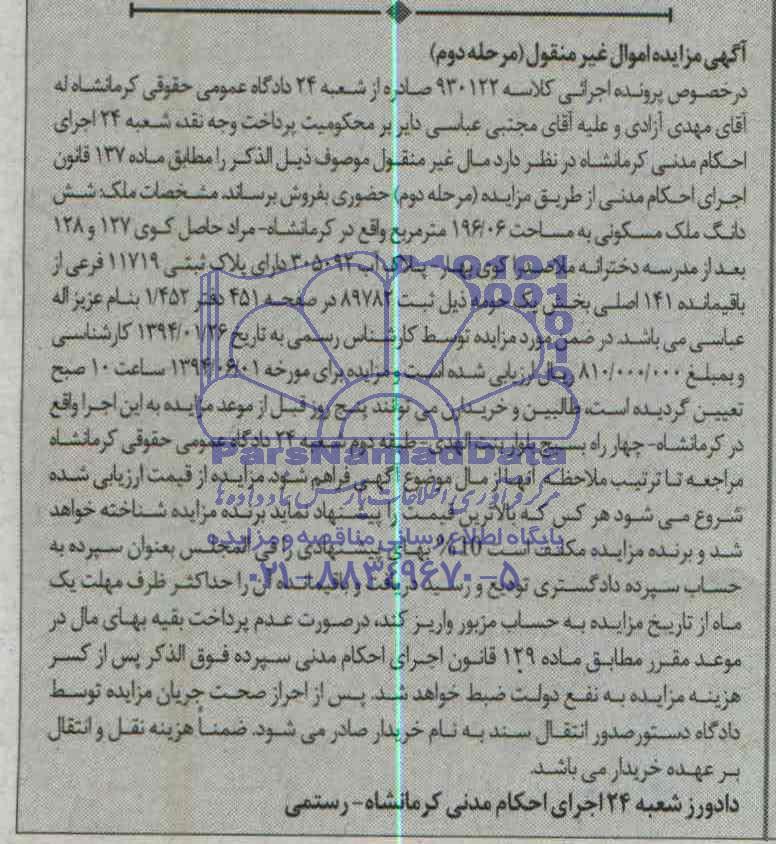 آگهی مزایده اموال غیر منقول (مرحله دوم)
درخصوص پرونده اجرائی کلاسه ۹۳۰۱۲۲ صادره از شعبه ۲۴ دادگاه عمومی حقوقی کرمانشاه له
آقای مهدی آزادی و علیه آقای مجتبی عباسی دایر بر محکومیت پرداخت وجه نقد، شعبه ۲۴ اجرای
احکام مدنی کرمانشاه در نظر دارد مال غیر منقول موصوف ذیل الذکر را مطابق ماده ۱۳۷ قانون
اجرای احکام مدنی از طریق مزایده (مرحله دوم) حضوری بفروش برساند. مشخصات ملک: شش
دانگ ملک مسکونی به مساحت ۱۹۶/۰۶ مترمربع واقع در کرمانشاه- مراد حاصل کوی ۱۲۷ و ۱۲۸
بعد از مدرسه دخترانه ملاصدرا کوی بهار- پلاک آب ۳۰۵۰۹۲ دارای پلاک ثبتی ۱۱۷۱۹ فرعی از
باقیمانده ۱۴۱ اصلی بخش یک حومه ذیل ثبت ۸۹۷۸۲ در صفحه ۴۵۱ دفتر ۱/۴۵۲ بنام عزیز اله
عباسی می باشد. در ضمن مورد مزایده توسط کارشناس رسمی به تاریخ ۱۳۹۴/۰۱/۲۶ کارشناسی
و بمبلغ ۸۱۰/۰۰۰/۰۰۰ ریال ارزیابی شده است و مزایده برای مورخه ۱۳۹۴/۰۶/۰۱ ساعت ۱۰ صبح
تعیین گردیده است، طالبین و خریداران می توانند پنج روز قبل از موعد مزایده به این اجرا واقع
در کرمانشاه- چهار راه بسیج بلوار بنت الهدی- طبقه دوم شعبه ۲۴ دادگاه عمومی حقوقی کرمانشاه
مراجعه تا ترتیب ملاحظه آنها از مال موضوع آگهی فراهم شود. مزایده از قیمت ارزیابی شده
شروع می شود هر کس که بالاترین قیمت را پیشنهاد نماید برنده مزایده شناخته خواهد
شد و برنده مزایده مکلف است 10% بهای پیشنهادی را فی المجلس بعنوان سپرده به
حساب سپرده دادگستری تودیع و رسید دریافت و باقیمانده آن را حداکثر ظرف مهلت یک
ماه از تاریخ مزایده به حساب مزبور واریز کند، درصورت عدم پرداخت بقیه بهای مال در
موعد مقرر مطابق ماده ۱۲۹ قانون اجرای احکام مدنی سپرده فوق الذکر پس از کسر
هزینه مزایده به نفع دولت ضبط خواهد شد. پس از احراز صحت جریان مزایده توسط
دادگاه دستور صدور انتقال سند به نام خریدار صادر می شود. ضمناً هزینه نقل و انتقال
بر عهده خریدار می باشد.
دادورز شعبه ۲۴ اجرای احکام مدنی کرمانشاه- رستمی
ParsNamadData
مرکز فرآوری اطلاعات پارس نماد داده ها
پایگاه اطلاع رسانی مناقصه و مزایده
۰۲۱-۸۸۳۴۹۶۷۰-۵